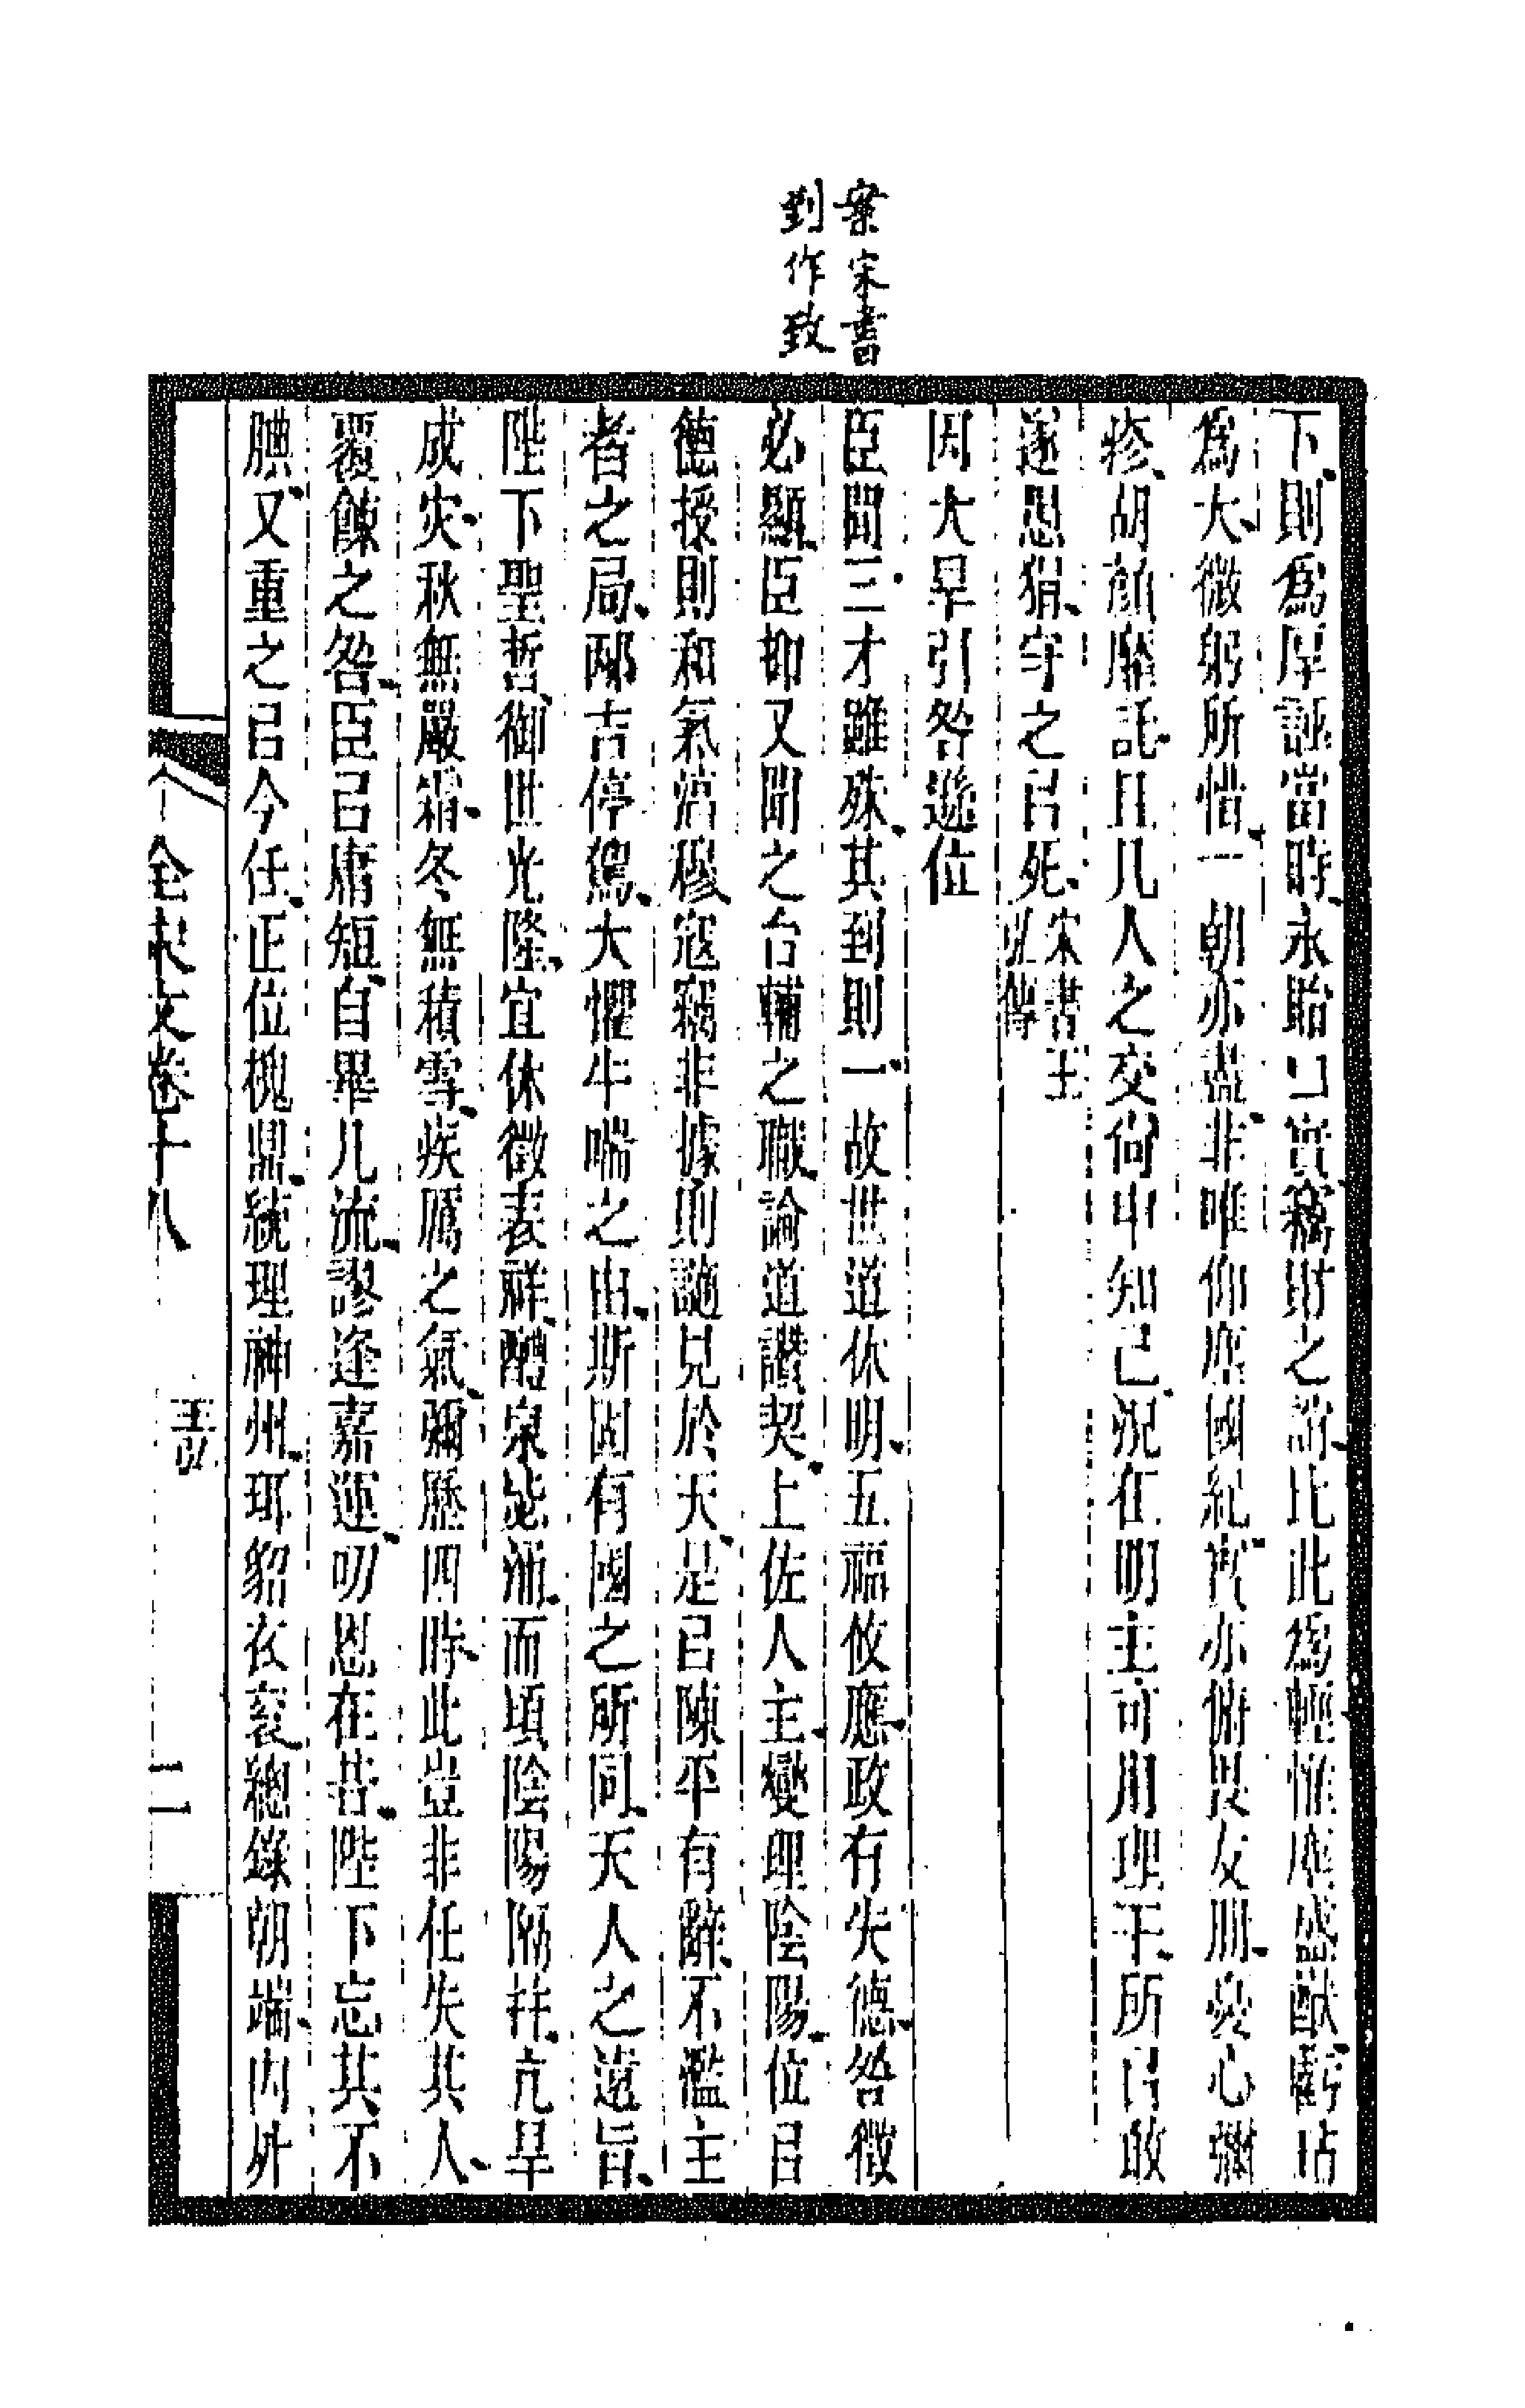 案宋書
到作致
下則爲厚誣當時永貽口實竊財之誚比此爲輕惟塵盛猷虧玷
爲大微躬所惜一朝亦盡非唯仰塵國紀實亦俯畏友朋憂心彌
疹胡顏靡託且凡人之交尚申知己況在明主可用理干所㠯敢
遂愚狷守之㠯死宋書王
弘傳
因大旱引咎遜位
臣聞三才雖殊其到則一故世道休明五福攸應政有失德咎徵
必顯臣抑又聞之台輔之職論道讚契上佐人主燮理陰陽位㠯
德授則和氣淳穆寇竊非據則謫見於天是㠯陳平有辭不濫主
者之局邴吉停駕大懼牛喘之由斯固有國之所同天人之遠旨
陛下聖哲御世光隆宜休徵表祥醴泉毖涌而頃陰陽隔并亢旱
成灾秋無嚴霜冬無積雪疾厲之氣彌歷四時此豈非任失其人
覆餗之咎臣㠯庸短自畢凡流謬逢嘉運叨恩在昔陛下忘其不
腆又重之㠯今任正位槐鼎統理神州珥貂衣袞總錄朝端內外
全宋文卷十八
王弘
二